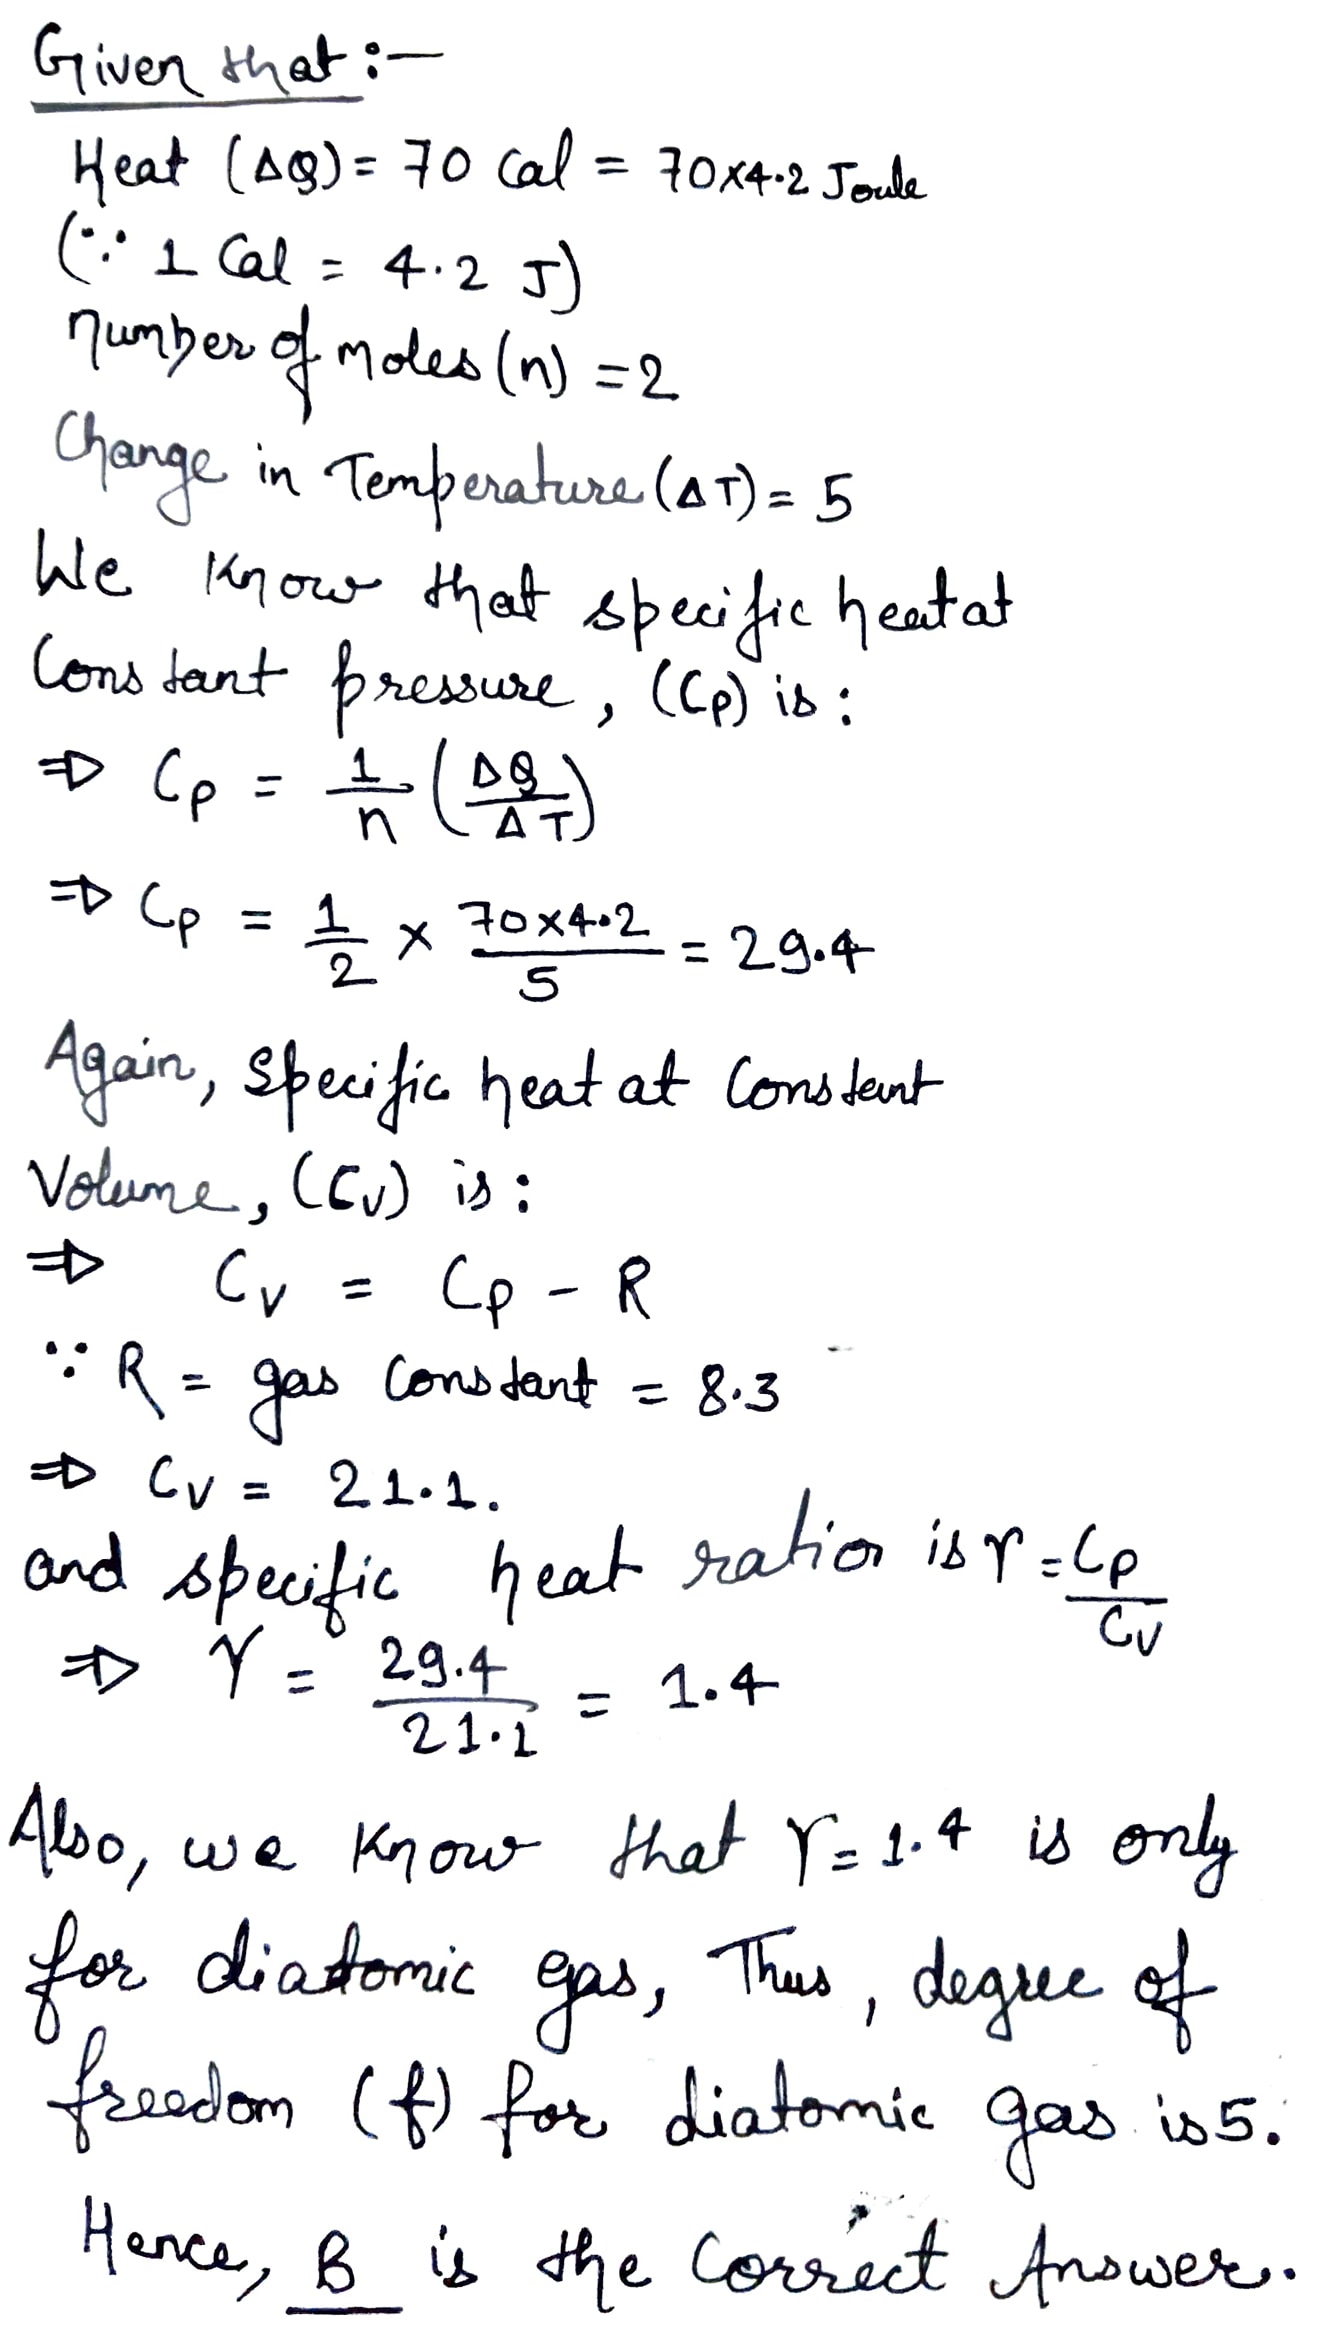 Given that :-
Heat (ΔQ) = 70 Cal = 70×4.2 Joule
(∵ 1 Cal = 4.2 J)
number of moles (n) = 2
Change in Temperature (ΔT) = 5
We Know that specific heat at
Constant pressure, (Cp) is :
⇒ Cp = 1/n (ΔQ/ΔT)
⇒ Cp = 1/2 × 70×4.2/5 = 29.4
Again, Specific heat at Constant
Volume, (Cv) is :
⇒ Cv = Cp - R
∵ R = gas Constant = 8.3
⇒ Cv = 21.1.
and specific heat ratio is γ = Cp/Cv
⇒ γ = 29.4/21.1 = 1.4
Also, we Know that γ = 1.4 is only
for diatomic gas, Thus, degree of
freedom (f) for diatomic gas is 5.
Hence, B is the Correct Answer.